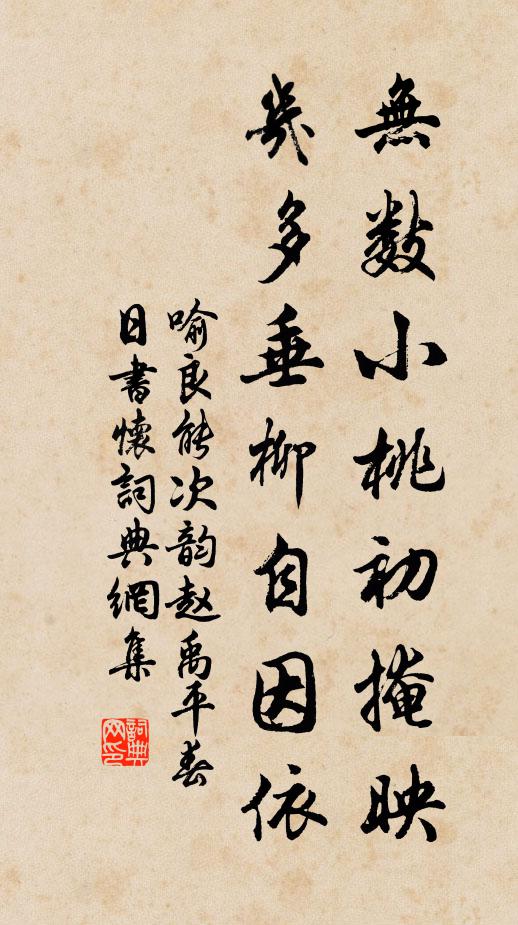 無数小桃初掩映
幾多垂柳自因依
喻良能次韵赵禹平春
日書懷詞典網集
詞典网印